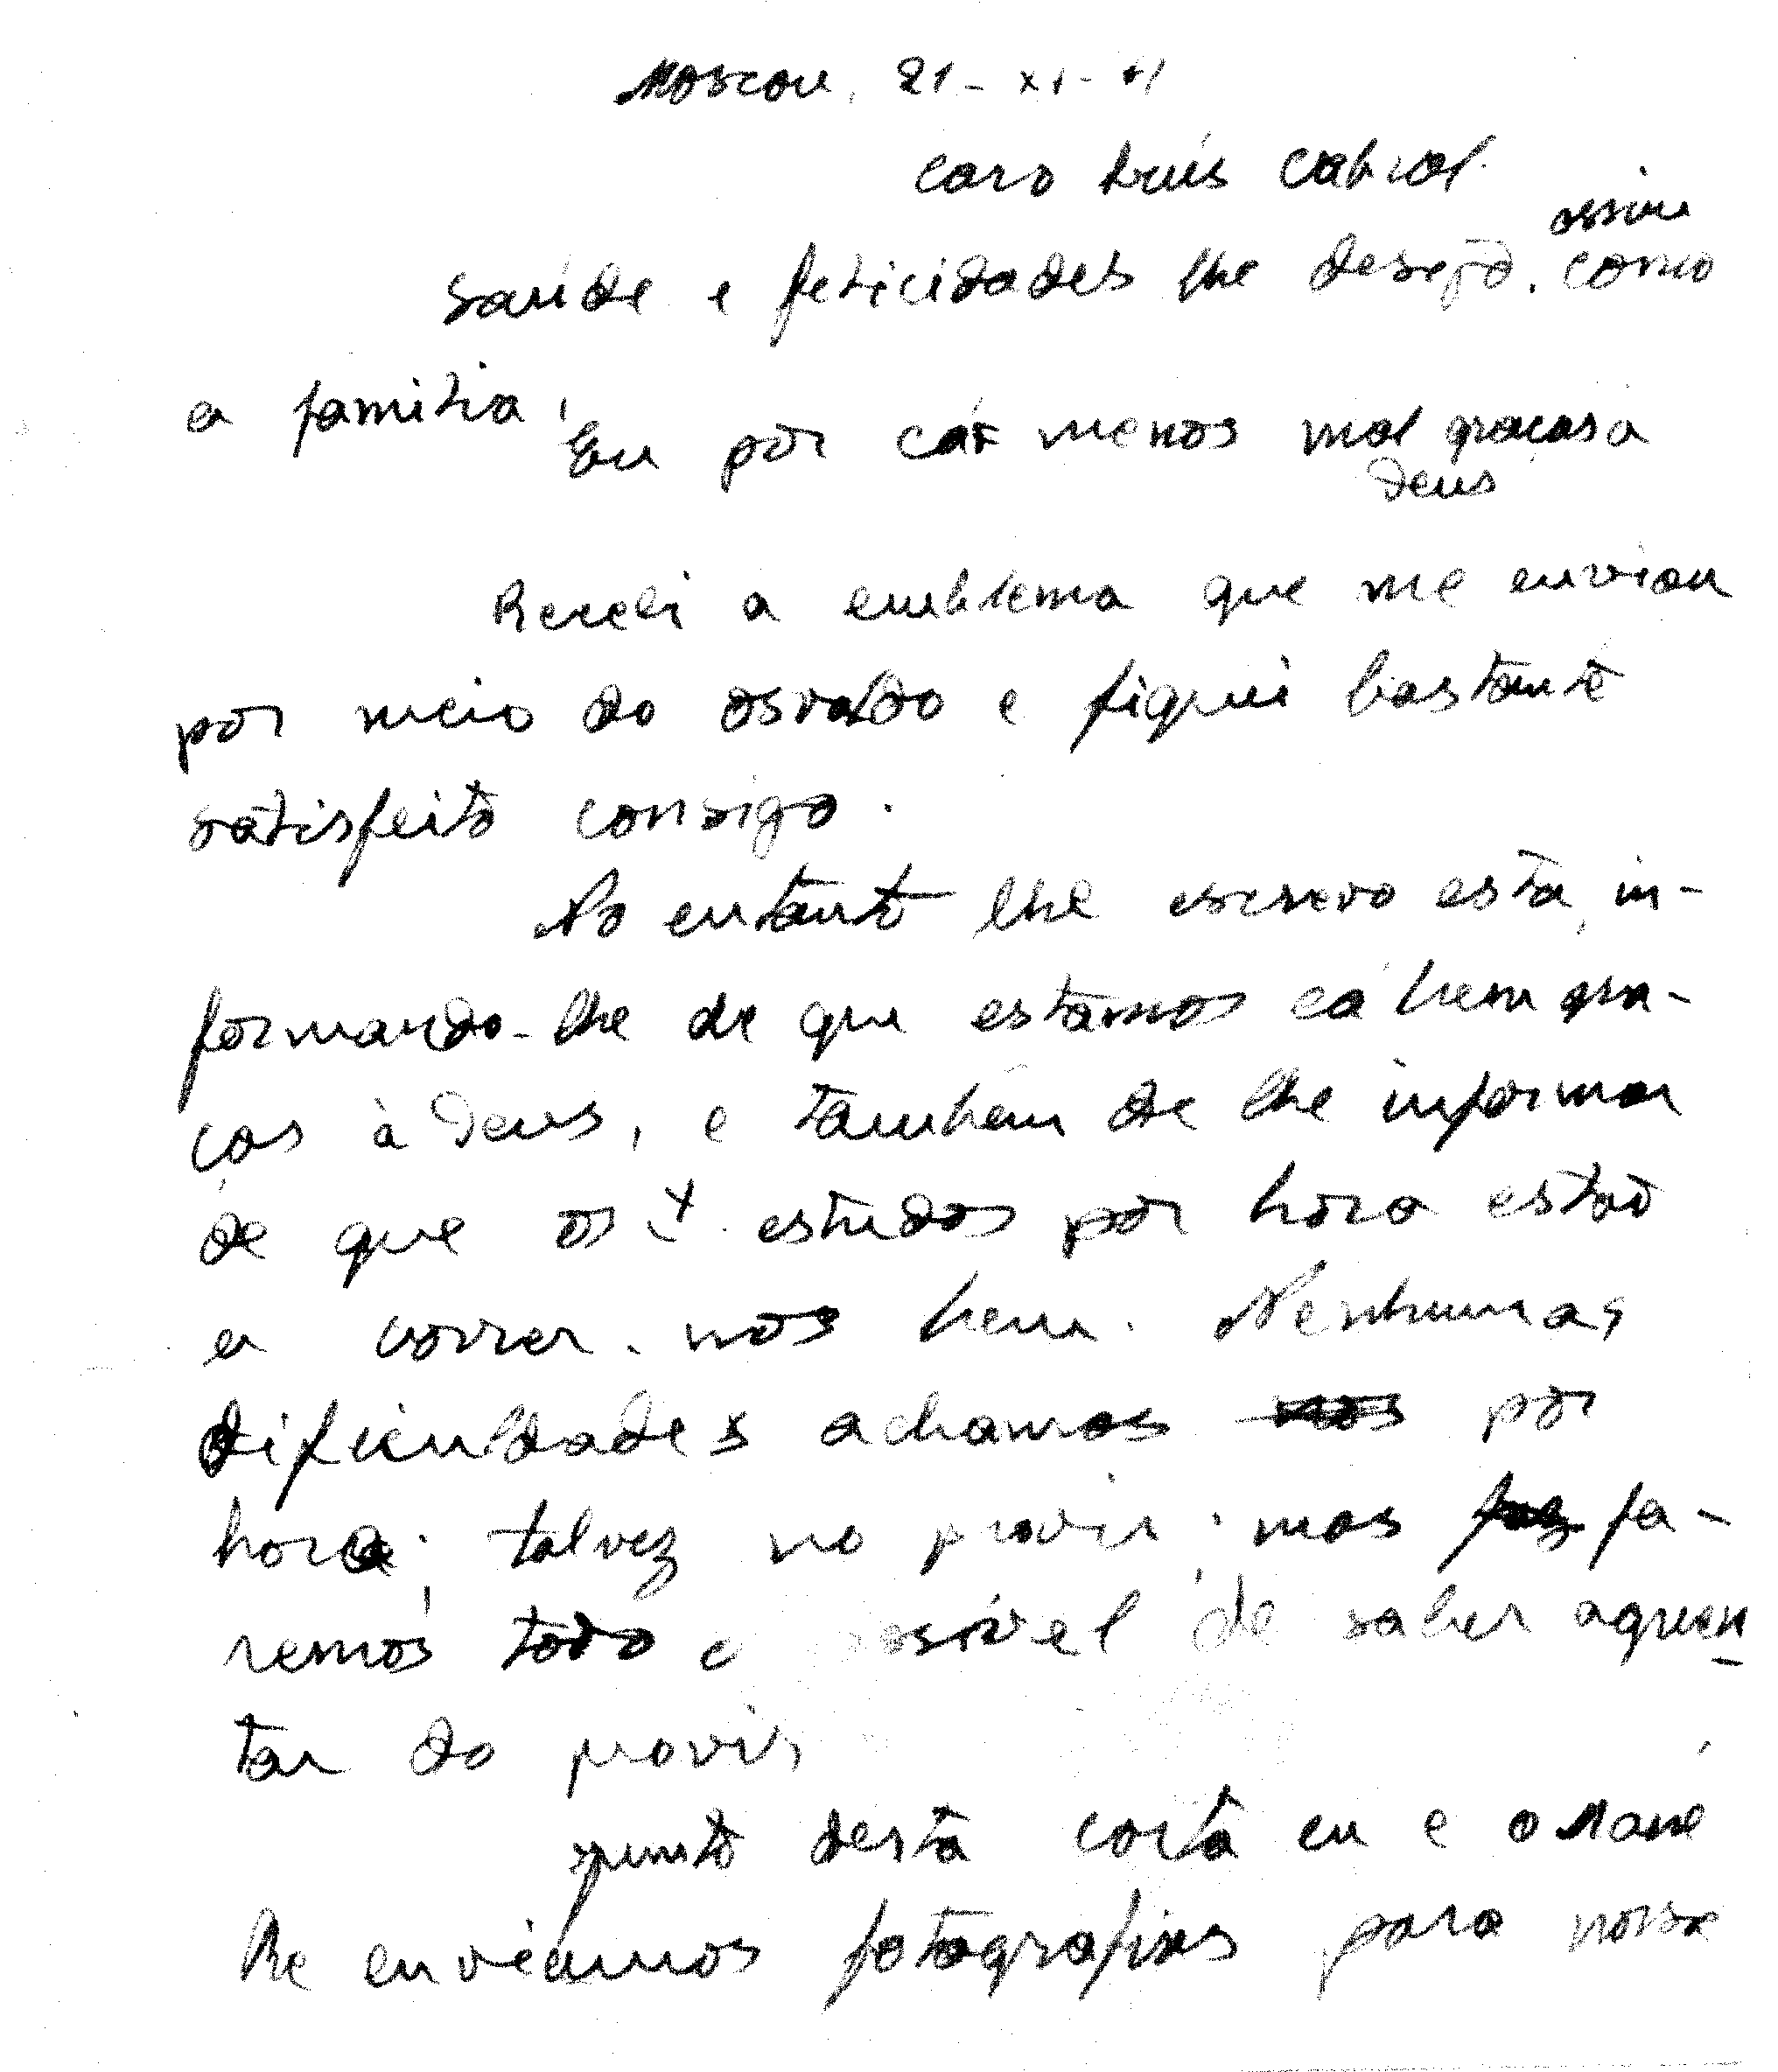 Moscou, 21-XI-61
Caro Luís Cabral.
assim
Saúde e felicidades lhe desejo, como
a familia,
Eu por cá menos mal graças a
deus
Recebi a emblema que me enviou
por meio do Osvaldo e fiquei bastante
satisfeito consigo.
No entanto lhe escrevo esta, in-
formando-lhe de que estamos cá bem gra-
ças à deus, e também de lhe informar
de que os estudos por hora estão
a correr-nos bem. Nenhumas
dificuldades achamos nos por
hora, talvez no provir; mas fa-
remos todo o possível de saber aguen-
tar do provir,
Junto desta carta eu e o Mané
lhe enviámos fotografias para nossa